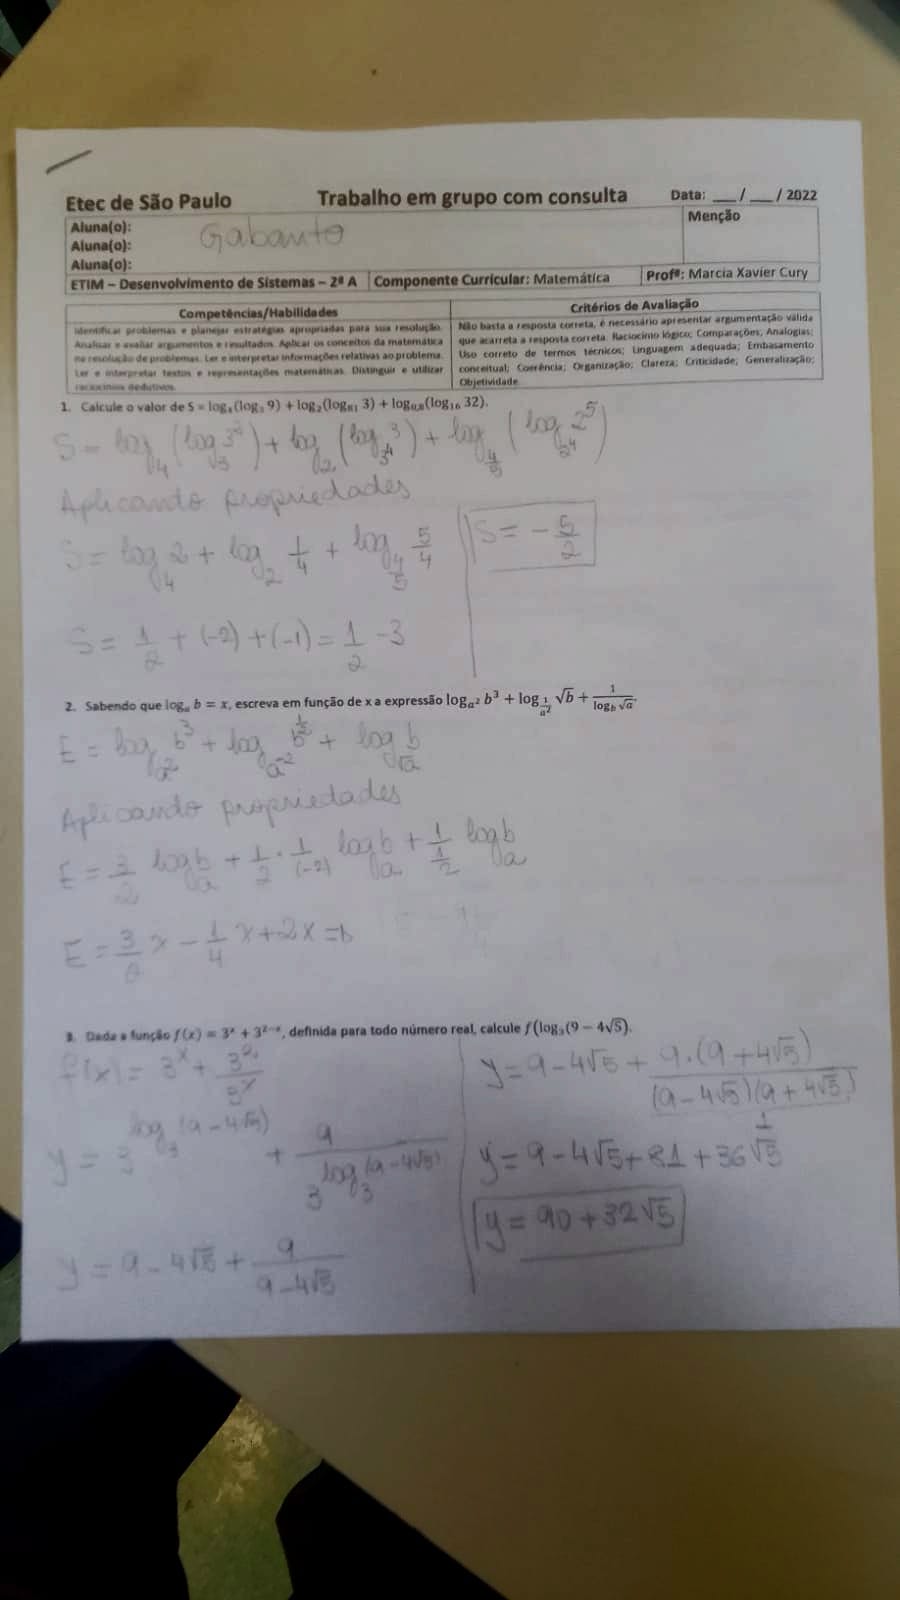 Etec de São Paulo Trabalho em grupo com consulta Data: ___ / ___ / 2022
Aluna(o):
Aluna(o): Gabarito
Aluna(o):
Menção
ETIM – Desenvolvimento de Sistemas – 2ª A Componente Curricular: Matemática Profª: Marcia Xavier Cury
Competências/Habilidades
Identificar problemas e planejar estratégias apropriadas para sua resolução.
Analisar e avaliar argumentos e resultados. Aplicar os conceitos da matemática
na resolução de problemas. Ler e interpretar informações relativas ao problema.
Ler e interpretar textos e representações matemáticas. Distinguir e utilizar
raciocínios dedutivos.
Critérios de Avaliação
Não basta a resposta correta, é necessário apresentar argumentação válida
que acarreta a resposta correta. Raciocínio lógico; Comparações; Analogias;
Uso correto de termos técnicos; Linguagem adequada; Embasamento
conceitual; Coerência; Organização; Clareza; Criticidade; Generalização;
Objetividade
1. Calcule o valor de S = log₄(log₃ 9) + log₂(log₈₁ 3) + log₀,₈(log₁₆ 32).
S = log₄ (log₃ 3²) + log₂ (log_3⁴ 3) + log_4/5 (log_2⁴ 2⁵)
Aplicando propriedades
S = log₄ 2 + log₂ 1/4 + log_4/5 5/4
S = 1/2 + (-2) + (-1) = 1/2 - 3
S = - 5/2
2. Sabendo que logₐ b = x, escreva em função de x a expressão log_a² b³ + log_1/a² √b + 1/log_b √a.
E = log_a² b³ + log_a⁻² b^1/2 + log_√a b
Aplicando propriedades
E = 3/2 logₐ b + 1/2 · 1/(-2) logₐ b + 1/(1/2) logₐ b
E = 3/2 x - 1/4 x + 2x ⇒
3. Dada a função f(x) = 3ˣ + 3²⁻ˣ, definida para todo número real, calcule f(log₃(9 − 4√5).
f(x) = 3ˣ + 3²/3ˣ
y = 3^log₃(9-4√5) + 9/3^log₃(9-4√5)
y = 9 - 4√5 + 9/(9-4√5)
y = 9 - 4√5 + 9·(9+4√5)/(9-4√5)(9+4√5)
1
y = 9 - 4√5 + 81 + 36√5
y = 90 + 32√5